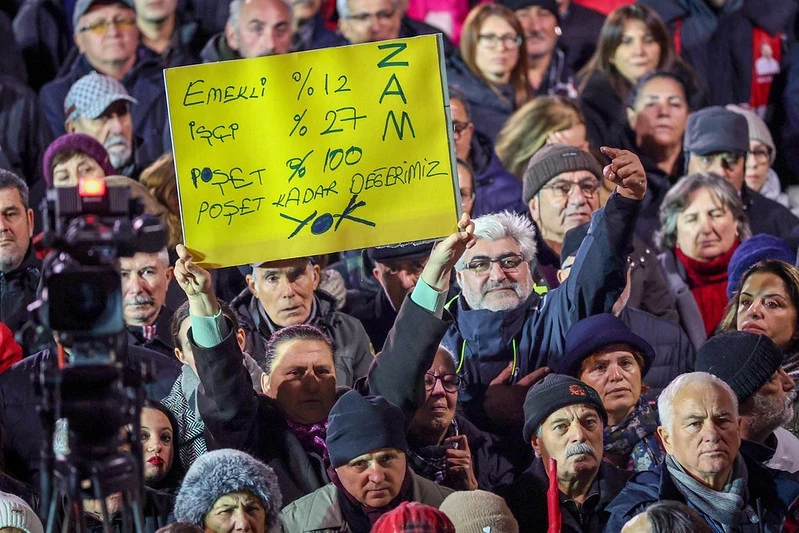 EMEKLİ %12
İŞÇİ %27
POŞET %100
POŞET KADAR DEĞERİMİZ
YOK
ZAM